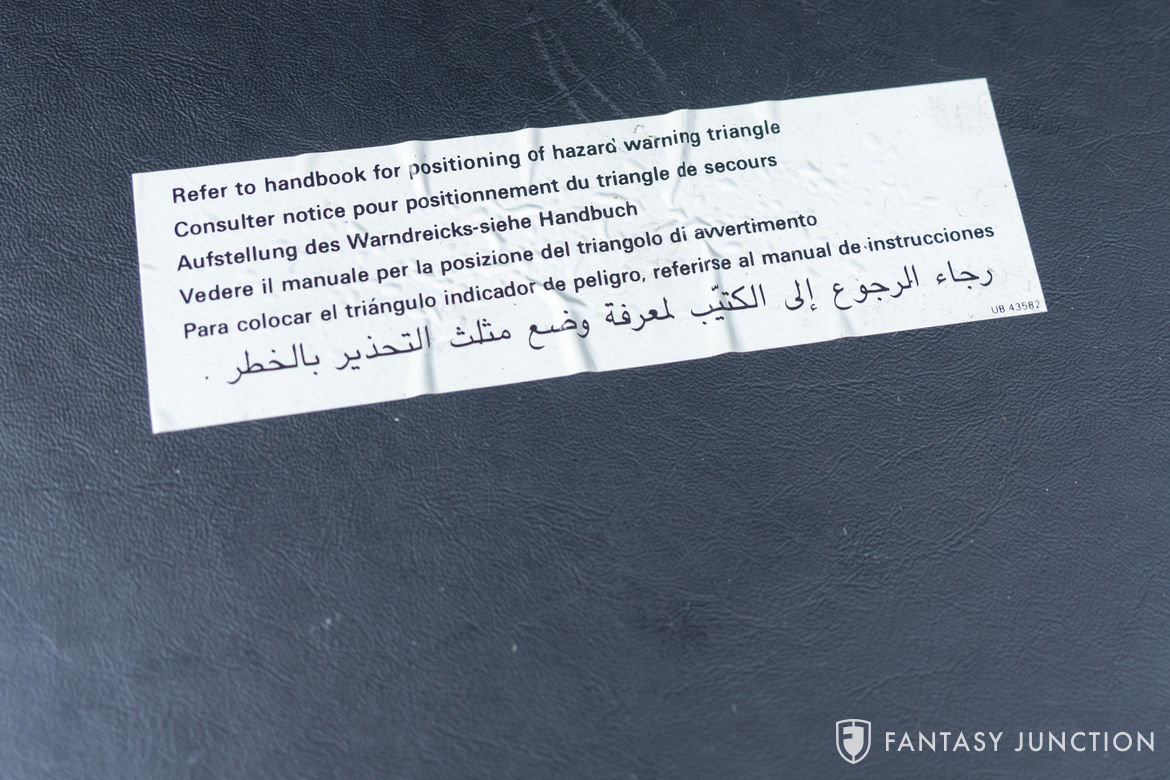 Refer to handbook for positioning of hazard warning triangle
Consulter notice pour positionnement du triangle de secours
Aufstellung des Warndreicks-siehe Handbuch
Vedere il manuale per la posizione del triangolo di avvertimento
Para colocar el triángulo indicador de peligro, referirse al manual de instrucciones
رجاء الرجوع إلى الكتيّب لمعرفة وضع مثلث التحذير بالخطر .
UB 43582
FANTASY JUNCTION